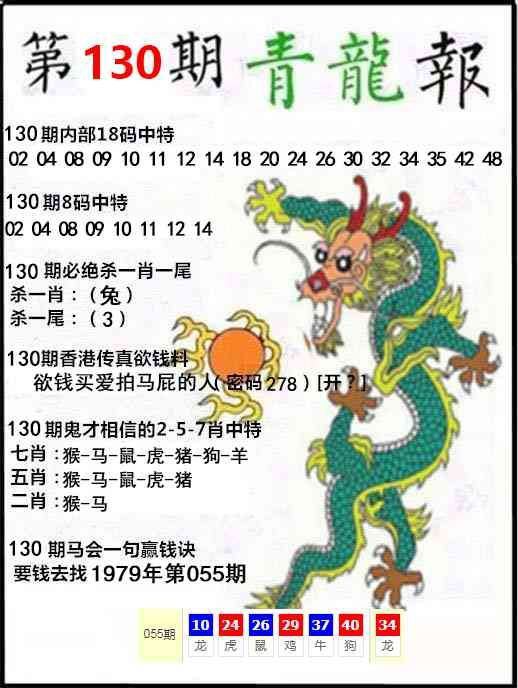 第130期青龍報
130期内部18码中特
02 04 08 09 10 11 12 14 18 20 24 26 30 32 34 35 42 48
130期8码中特
02 04 08 09 10 11 12 14
130期必绝杀一肖一尾
杀一肖：（兔）
杀一尾：（3）
130期香港传真欲钱料
欲钱买爱拍马屁的人（密码278）[开？]
130期鬼才相信的2-5-7肖中特
七肖：猴-马-鼠-虎-猪-狗-羊
五肖：猴-马-鼠-虎-猪
二肖：猴-马
130期马会一句赢钱诀
要钱去找1979年第055期
055期 10 24 26 29 37 40 34
龙 虎 鼠 鸡 牛 狗 龙